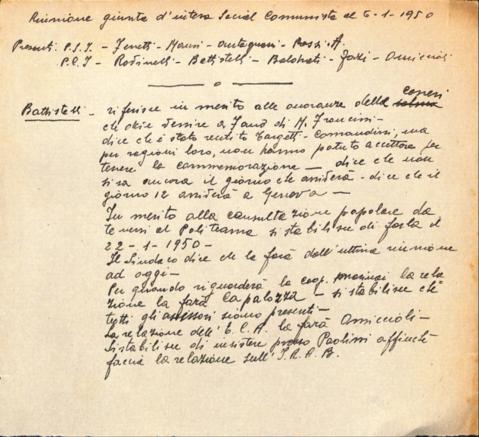 Riunione giunta d'intesa Social Comunista del 6-1-1950
Presenti P.S.I. - Zenetti - Mausi - Antognoni - Rossi A.
P.C.I - Rodinelli - Battistelli - Baldrati - Fazi - Amiccioli
Battistelli - riferisce in merito alle onoranze della ceneri
che deve venire a Fano di M. Francini -
dice che è stato sentito Targetti - Comandini, ma
per ragioni loro, non hanno potuto accettare per
tenere la commemorazione - dice che non
si sa ancora il giorno che arriverà - dice che il
giorno 12 arriverà a Genova -
In merito alla consultazione popolare da
tenersi al Politeama si stabilisce di farla il
22-1-1950 -
Il Sindaco dice che la farà dall'ultima riunione
ad oggi -
Per quando riguarderà la coop. la rela
zione la farà Capalozza - si stabilisce che
tutti gli assessori siano presenti -
La relazione dell'E.C.A. la farà Amiccioli -
Si stabilisce di insistere presso Paolini affinchè
faccia la relazione sull'I.R.A.B.